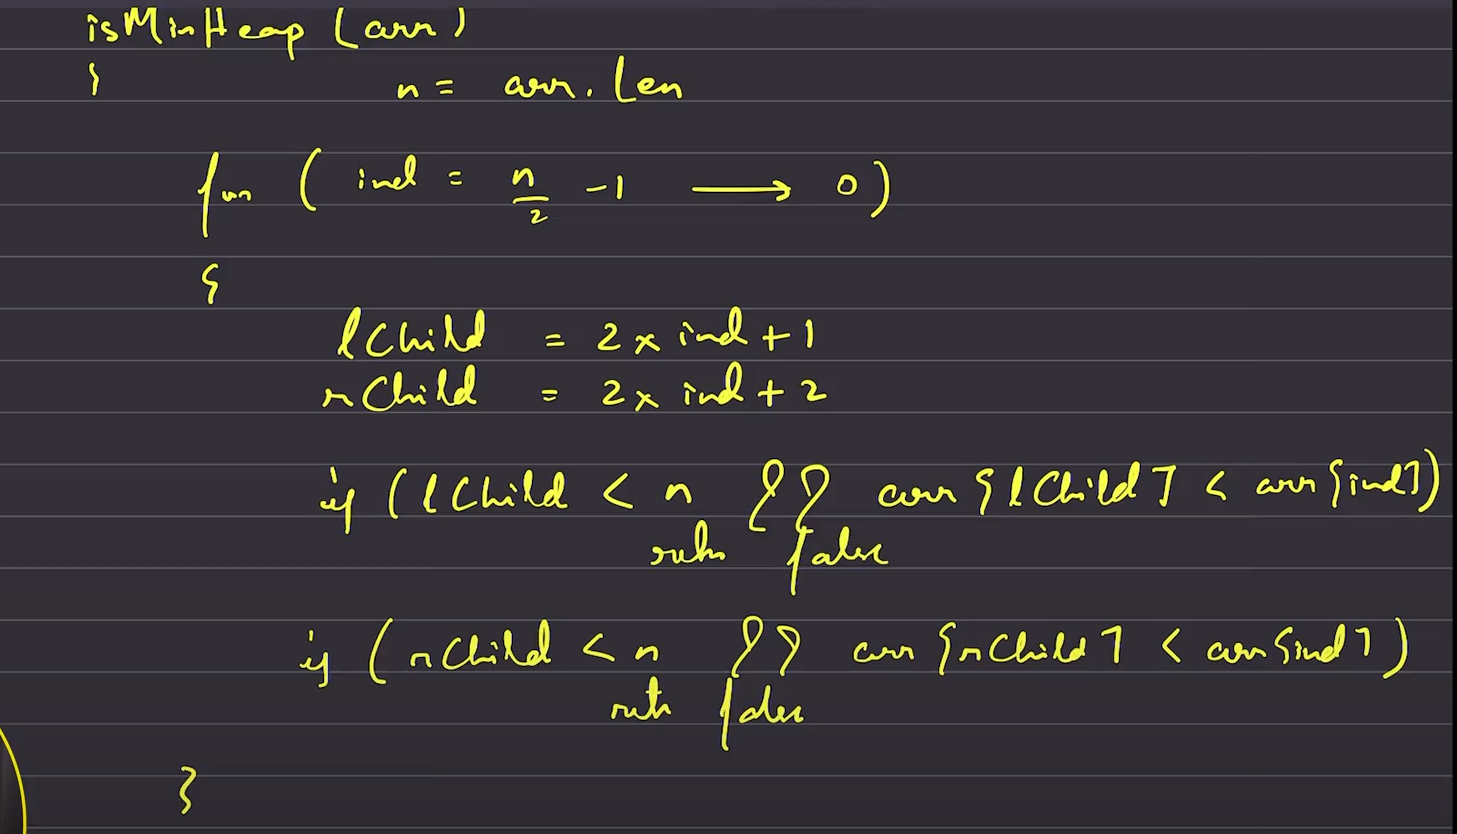 isMinHeap (arr)
{ n = arr.len
for ( ind = n/2 -1 → 0)
{
lChild = 2 x ind + 1
rChild = 2 x ind + 2
if (lChild < n && arr[lChild] < arr[ind])
return false
if (rChild < n && arr[rChild] < arr[ind])
return false
}